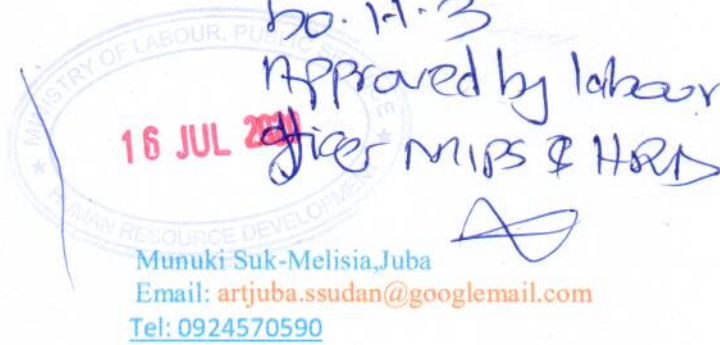 Approved by labour
officer MLPS & HRD
MINISTRY OF LABOUR, PUBLIC SERVICE
16 JUL
HUMAN RESOURCE DEVELOPMENT
Munuki Suk-Melisia,Juba
Email: artjuba.ssudan@googlemail.com
Tel: 0924570590